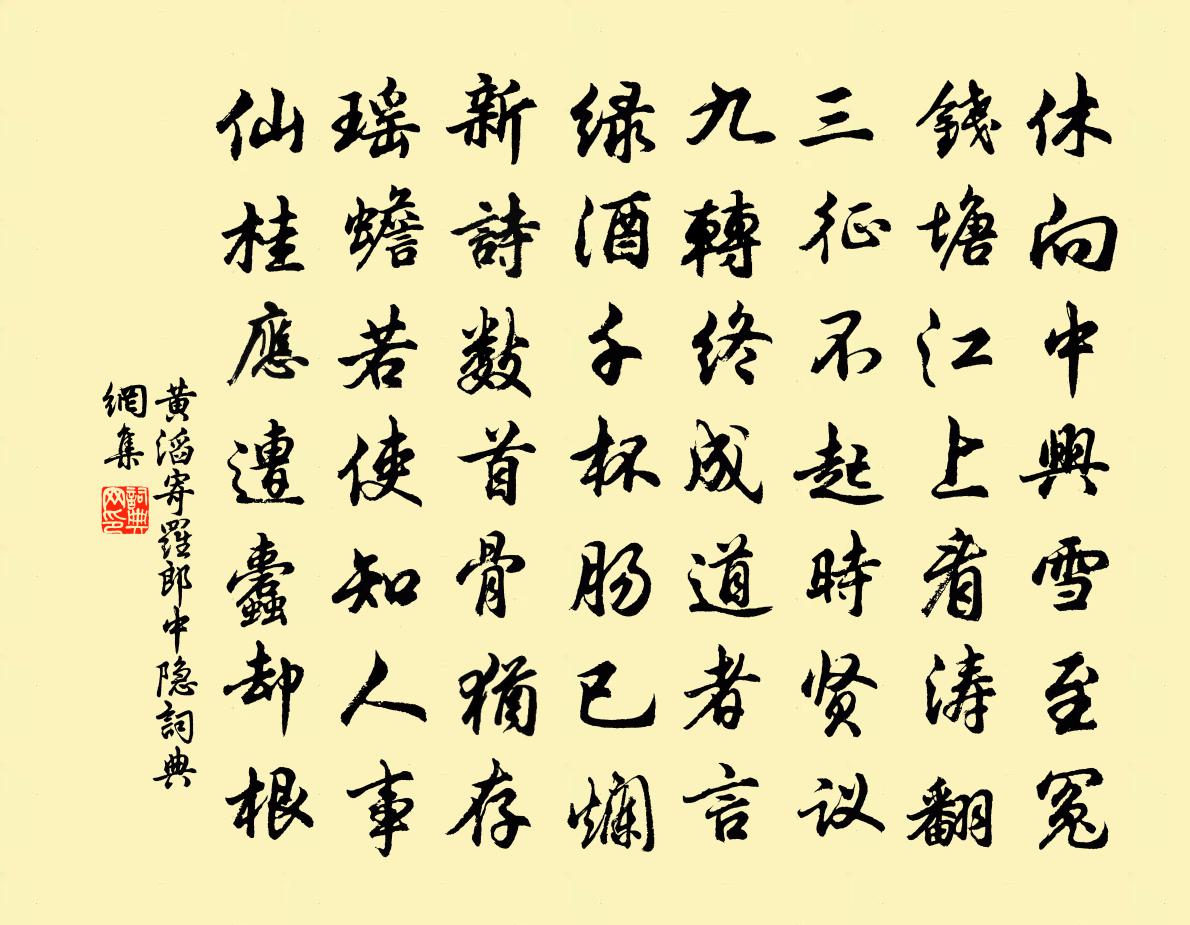 休向中興雪至冤
錢塘江上看濤翻
三征不起時贤议
九轉终成道者言
绿酒千杯肠已爛
新詩數首骨猶存
瑶蟾若使知人事
仙桂應遭蠹却根
黄滔寄羅郎中隐詞典
網集
詞典
网印